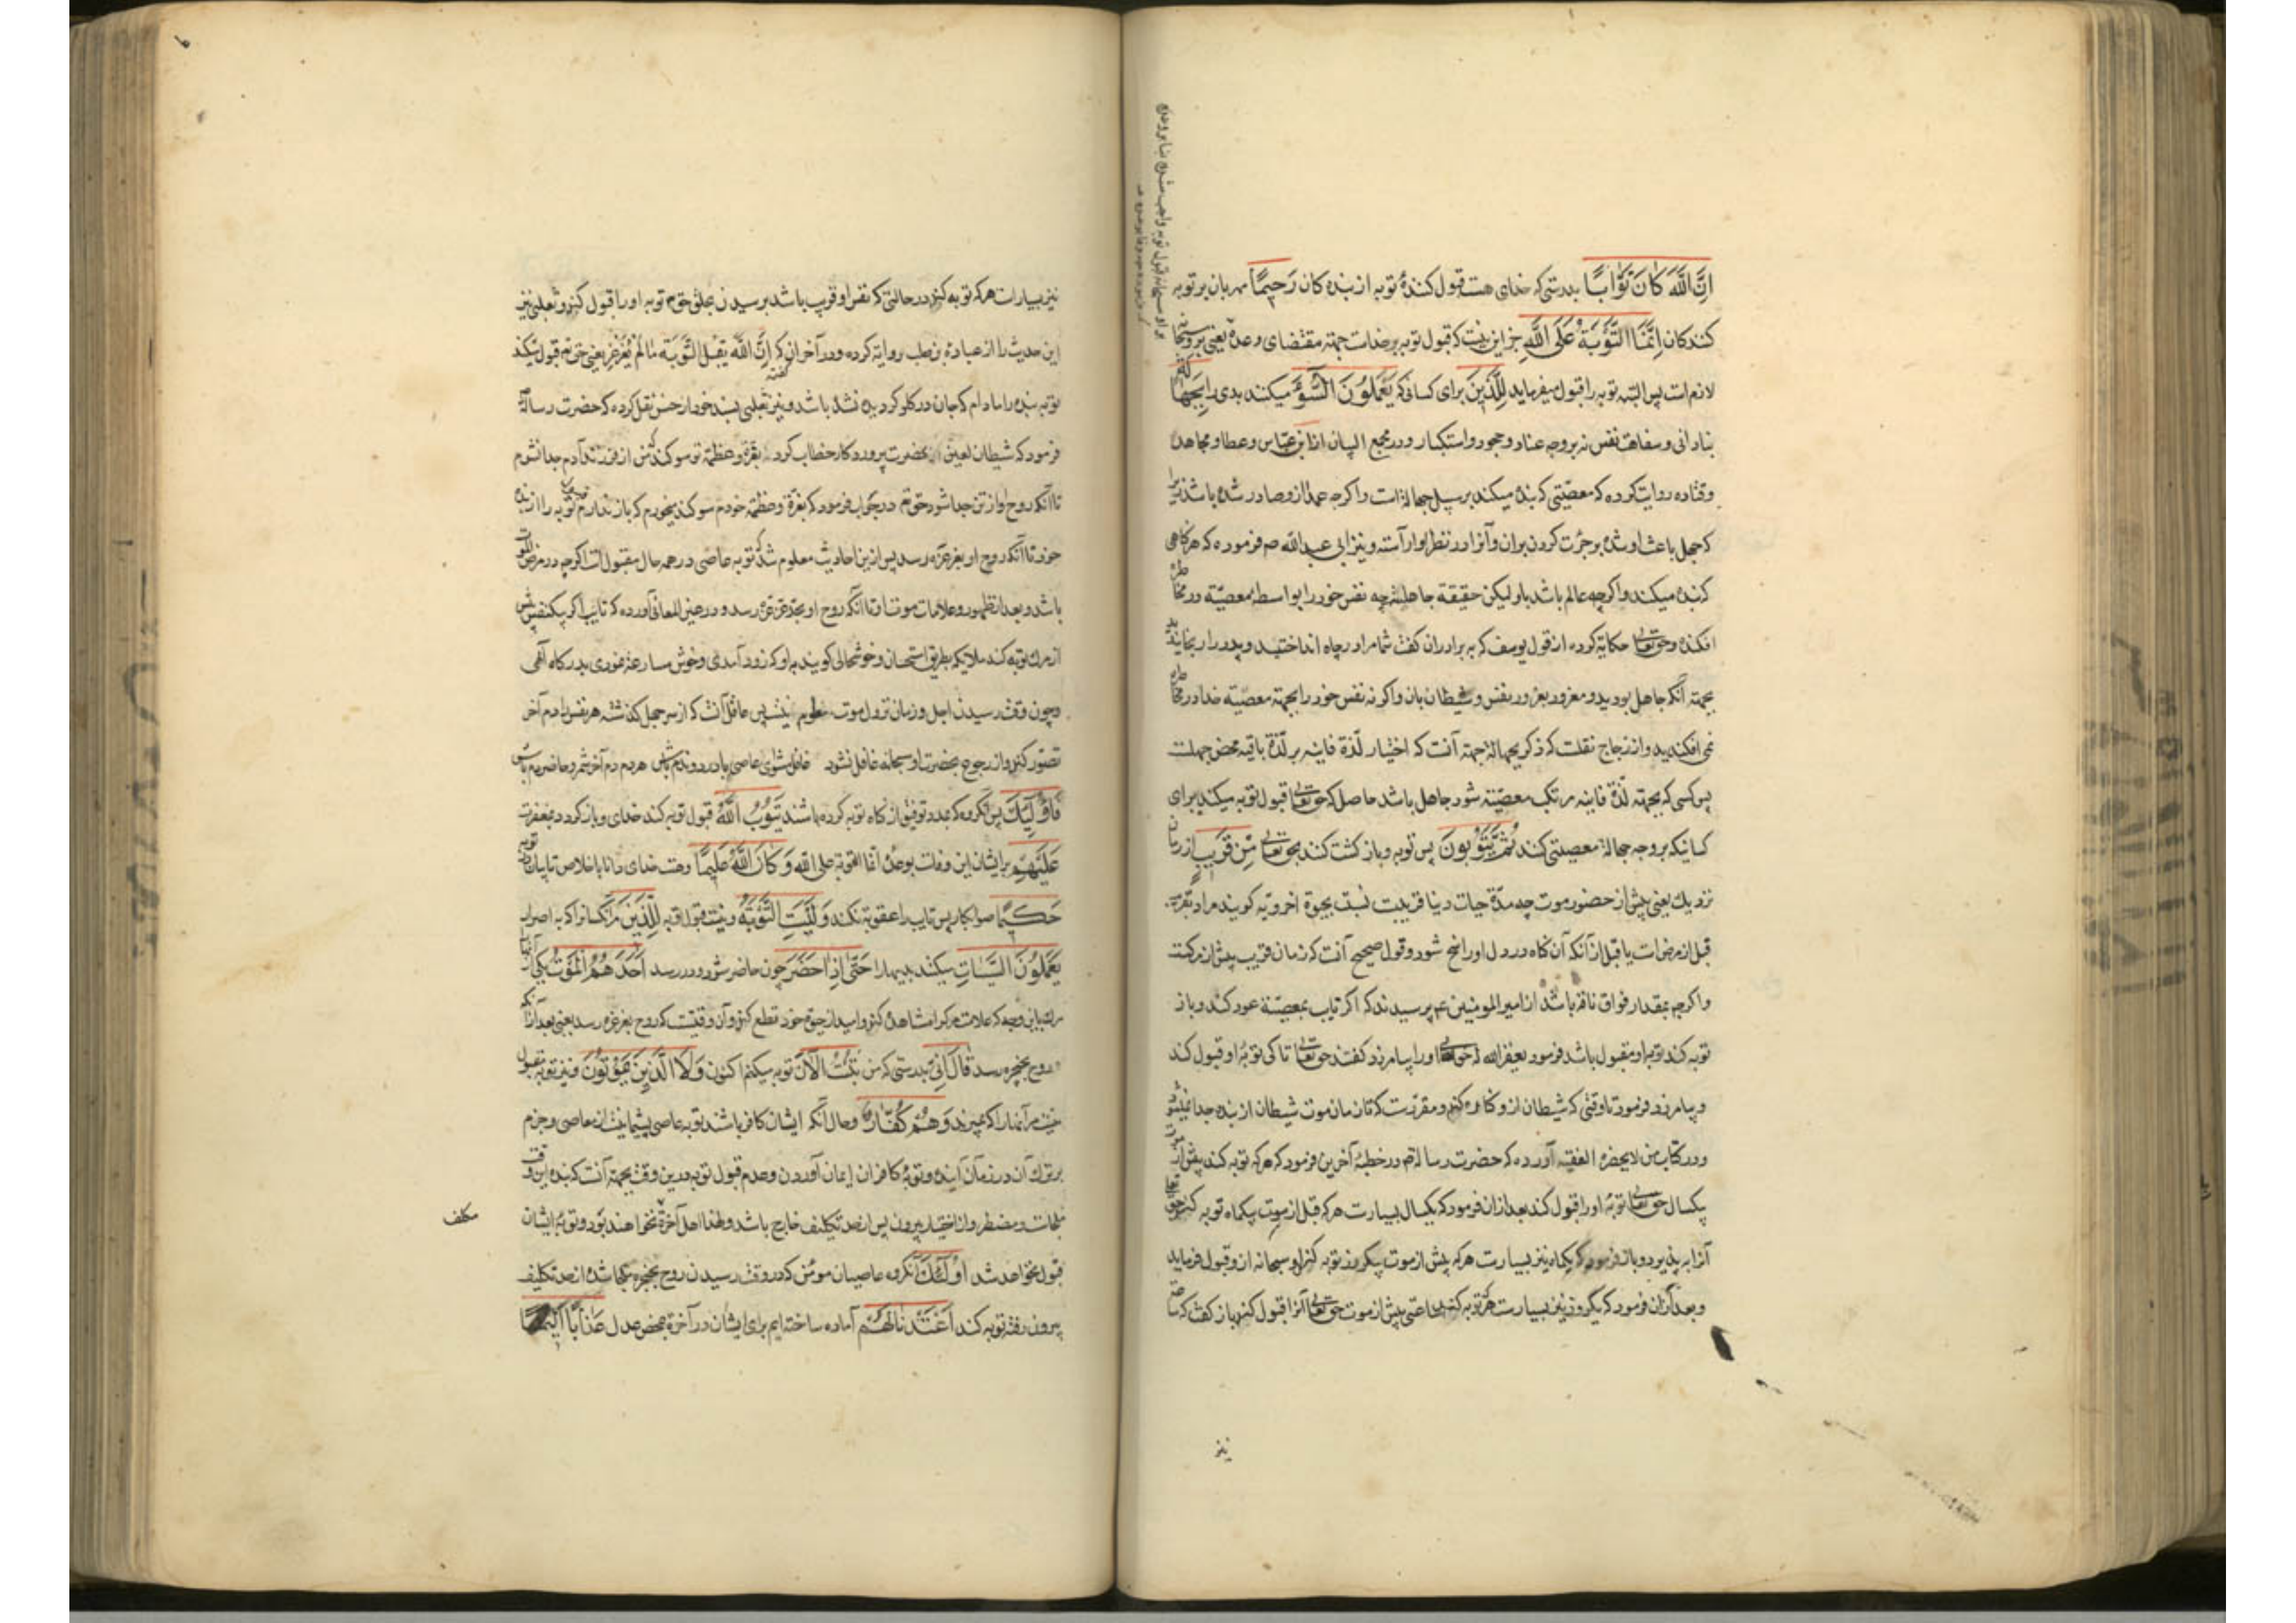 اِنَّ اللَّهَ كَانَ تَوَّابًا بدرستی که خدای هست قبول کنندهٔ توبه از بنده کان رَحِيمًا مهربان بر توبه
کنندکان اِنَّمَا التَّوْبَةُ عَلَى اللَّهِ جز این نیست که قبول توبه بر خداست جهته مقتضای وعده یعنی بر وسبحانه
لازم است پس البته توبه را قبول میفرماید لِلَّذِينَ برای کسانی که يَعْمَلُونَ السُّوءَ میکنند بدی را بِجَهَالَةٍ
بنادانی و سفاهت نفس نه بر وجه عناد و جحود و استکبار و در مجمع البیان از ابن عباس و عطا و مجاهد
و قتاده روایت کرده که معصیتی که بنده میکند بر سبیل جهالة است واکرچه عمدا ازو صادر شده باشد زیرا
که جهل باعث او شده بر جرئت کردن بران و آنرا در نظر او آراسته و نیز ابی عبدالله ص فرموده که هر کناهی
که بنده میکند واکرچه عالم باشد باو لیکن حقیقة جاهلست چه نفس خود را بواسطه معصیة در مخاطره
افکنده و حق تعالی حکایة کرده از قول یوسف که به برادران کفت شما مرا در چاه انداختید و پدر را رنجانیدید
بجهته آنکه جاهل بودید و مغرور بغرور نفس و شیطان بان واکرنه نفس خود را بجهته معصیة خدا در مخاطره
نمی افکندید و از زجاج نقلست که ذکر بجهالة جهته آنست که اختیار لذة فانیه بر لذة باقیه محض جهلست
پس کسی که بجهته لذة فانیه مرتکب معصیة شود جاهل باشد حاصل که حق تعالی قبول توبه میکند برای
کسانیکه بر وجه جهالة معصیتی کنند ثُمَّ يَتُوبُونَ پس توبه و باز کشت کنند بحق تعالی مِنْ قَرِيبٍ از زمان
نزدیك یعنی پیش از حضور موت چه مدّة حیات دنیا قریبست نسبت بحیوة اخرویه کویند مراد بقریب
قبل از مرض است یا قبل از آنکه آن کناه در دل او راسخ شود و قول صحیح آنست که زمان قریب پیش از مرکست
واکرچه بمقدار فواق ناقه باشد از امیر المومنین عم پرسیدند که اکر تایب بمعصیة عود کند و باز
توبه کند توبه او مقبول باشد فرمود یغفر الله له حق تعالی او را بیامرزد کفتند حق تعالی تا کی توبهٔ او قبول کند
و بیامرزد فرمود تا وقتی که شیطان ازو کناره کند و مقررست که تا زمان موت شیطان از بنده جدا نمیشود
و در کتاب من لا یحضره الفقیه آورده که حضرت رسالة ص در خطبهٔ آخرین فرمود که هر که توبه کند پیش از موت
بیکسال حق تعالی توبهٔ او را قبول کند بعد از ان فرمود که یکسال بسیارست هر که قبل از موت بیکماه توبه کند حق تعالی
آنرا به پذیرد و باز فرمود که یکماه نیز بسیارست هر که پیش از موت بیکروز توبه کند او سبحانه ازو قبول فرماید
و بعد از ان فرمود که یکروز نیز بسیارست هر که توبه کند بساعتی پیش از موت حق تعالی آنرا قبول کند باز کفت که ساعة
نیز
نیز بسیار است هر که توبه کند در حالتی که نفس او قریب باشد برسیدن بحلق حق تع توبه او را قبول کند و ثعلبی نیز
این حدیث را از عبادة بن صلب روایة کرده و در آخر ان کفته که اِنَّ اللَّه يَقبَلُ التَّوبَة مَا لَمْ يُغَرْغِر یعنی حق تع قبول میکند
توبه بنده را مادام که جان در کلو کردیده نشده باشد و نیز ثعلبی بسند خود از حسن نقل کرده که حضرت رسالة
فرمود که شیطان لعین بحضرت پروردکار خطاب کرد که بعزة و عظمة تو سوکند که من از فرزند آدم جدا نشوم
تا آنکه روح او از تن جدا شود حق تع در جواب فرمود که بعزة و عظمة خودم سوکند میخورم که باز ندارم قبول توبه را از بنده
خود تا آنکه روح او بغرغره رسد پس از این احادیث معلوم شد که توبه عاصی در همه حال مقبول است اکرچه در مرض الموت
باشد و بعد از ظهور علامات موت او تا آنکه روح او بحد غرغره رسد و در عین المعانی آورده که تایب اکر بیکنفس پیش
از مرك توبه کند ملایکه بطریق استحسان و خوشحالی کویند باو که زود آمدی و خوش مسارعة نمودی بدرکاه آلهی
و چون وقت رسیدن اجل و زمان نزول موت معلوم نیست پس عاقل آنست که از سر جهل کذشته هر نفس را دم آخر
تصور کند و از رجوع بحضرت او سبحانه غافل نشود غافل مشو ای عاصی با درد و ندم باش هر دم دم آخر شمر و حاضر دم باش
فَاُولٰئِكَ پس آنکروه که بمدد توفیق از کناه توبه کرده باشند يَتُوبُ اللَّهُ قبول توبه کند خدای و باز کردد بمغفرت
عَلَيْهِمْ بر ایشان این وفاست بوعدهٔ انما التوبة علی الله وَ كَانَ اللَّهُ عَلِيمًا و هست خدای دانا باخلاص تایبان در توبه
حَكِيمًا صوابکار پس تایب را عقوبة نکند وَ لَيْسَتِ التَّوْبَةُ و نیست قبول توبه لِلَّذِينَ مر آنکسانرا که به اصرار
يَعْمَلُونَ السَّيِّئَاتِ میکنند بدیها را حَتّٰى اِذَا حَضَرَ چون حاضر شود و در رسد اَحَدَهُمُ الْمَوْتُ یکی از آنها را
مرك باین وجه که علامت مرك را مشاهده کند و امید از حیوة خود قطع کند و آن وقتیست که روح بغرغره رسد یعنی بعد از آنکه
روح بحنجره رسد قَالَ اِنِّي بدرستی که من تُبْتُ الْآنَ توبه میکنم اکنون وَ لَا الَّذِينَ يَمُوتُونَ و نیز توبه مقبول
نیست مر آنها را که میرند وَ هُمْ كُفَّارٌ و حال آنکه ایشان کافر باشند توبه عاصی پشیمانیست از معاصی و جزم
بر ترك آن در زمان آینده و توبهٔ کافران ایمان آوردن و عدم قبول توبه درین وقت بجهته آنست که بنده این وقت
ملجاست و مضطر و از اختیار بیرون پس از حد تکلیف خارج باشد و لهذا اهل آخرة نخواهند بود و توبهٔ ایشان
قبول نخواهد شد اُولٰئِكَ آنکروه عاصیان مومن که در وقت رسیدن روح بحنجره ملجا شده از حد تکلیف
بیرون رفته توبه کنند اَعْتَدْنَا لَهُمْ آماده ساخته ایم برای ایشان در آخرة بمحض عدل عَذَابًا اَلِيمًا
مکلف